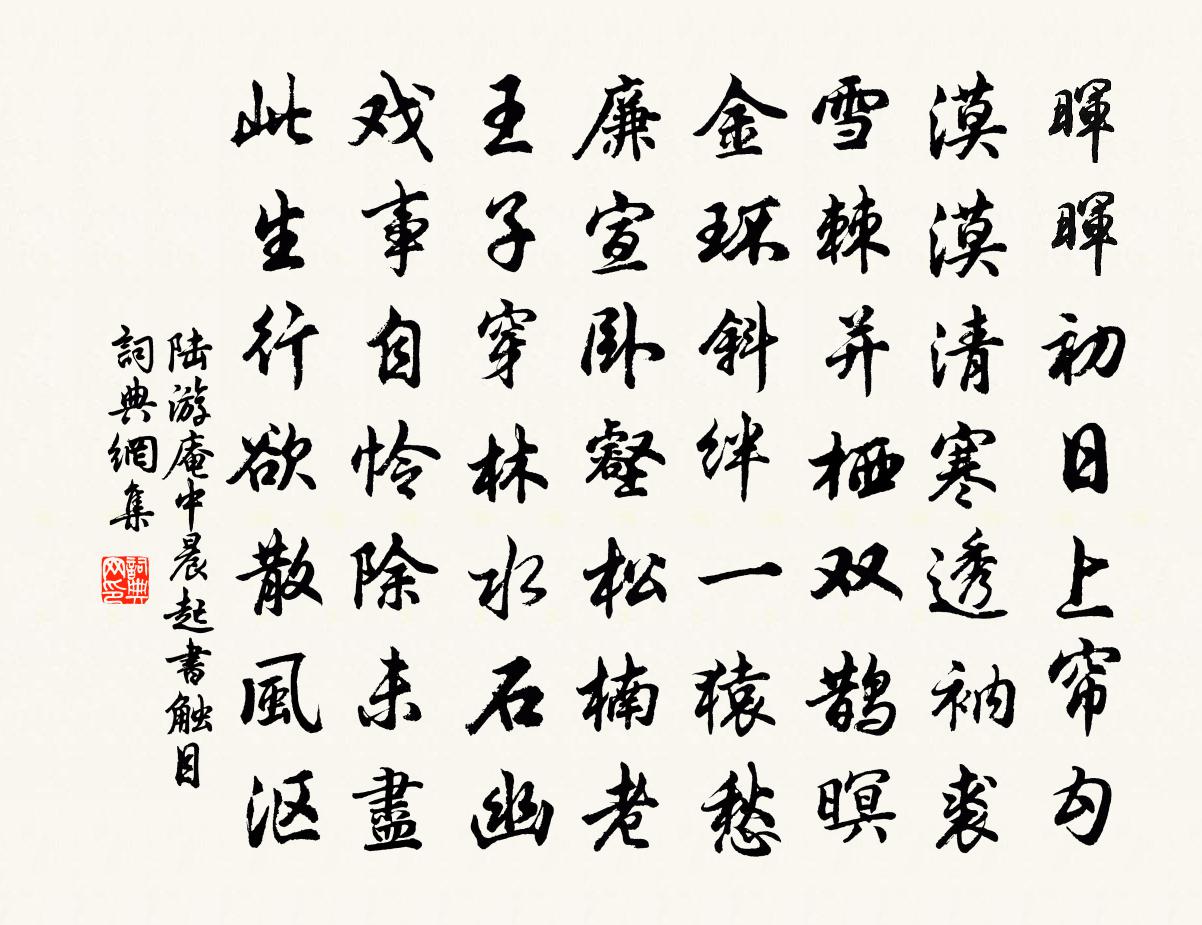 暉暉初日上帘勾
漠漠清寒透衲裘
雪棘并栖双鹊暝
金环斜绊一猿愁
廉宣卧壑松楠老
王子穿林水石幽
戏事自怜除未盡
此生行欲散風沤
陆游庵中晨起書触目
詞典網集
詞典网印